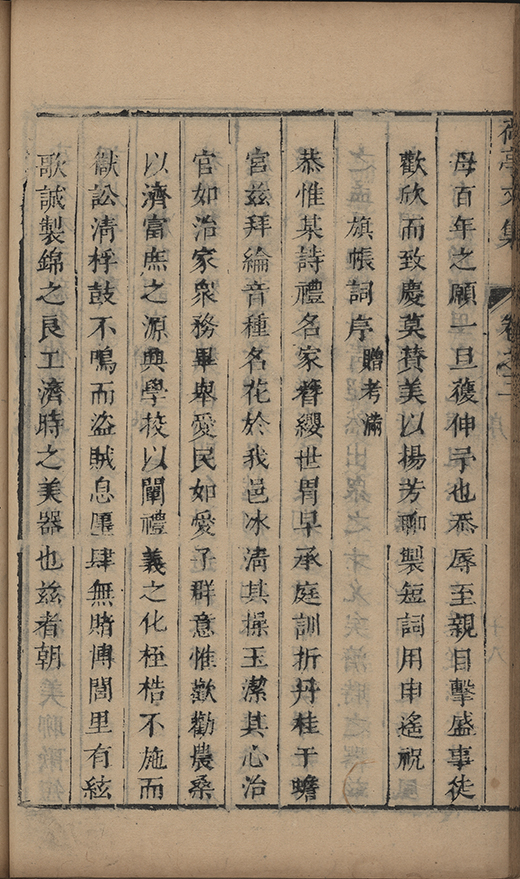 亭文集
卷之二
母百年之願一旦獲伸予也忝辱至親目擊盛事徒
歡欣而致慶莫贊美以揚芳聊製短詞用申遙祝
旗帳詞序 贈考滿
恭惟某詩禮名家簪纓世胄早承庭訓折丹桂于蟾
宮茲拜綸音種名花於我邑冰清其操玉潔其心治
官如治家衆務畢舉愛民如愛子群意惟歡勸農桑
以濟富庶之源興學校以闡禮義之化桎梏不施而
獄訟清桴鼓不鳴而盜賊息廛肆無賭博閭里有絃
歌誠製錦之良工濟時之美器也茲者朝